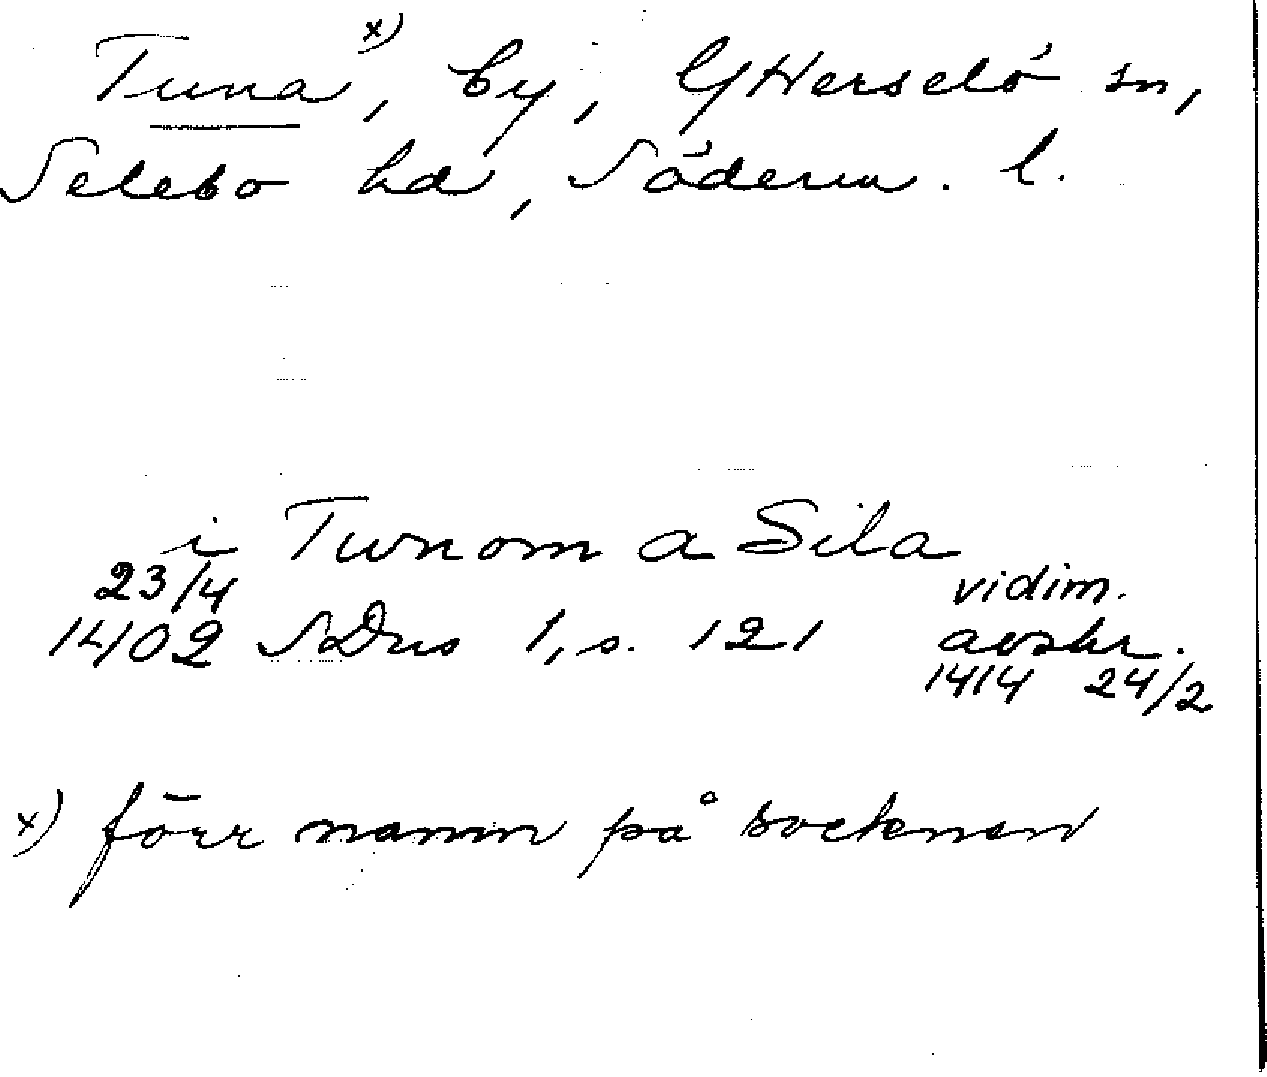 Tuna x), by, Ytterselö sn,
Selebo hd, Söderm. l.
i Twnom a Sila
23/4 vidim.
1402 SDns 1, s. 121 avskr.
1414 24/2
x) förr namn på socknen